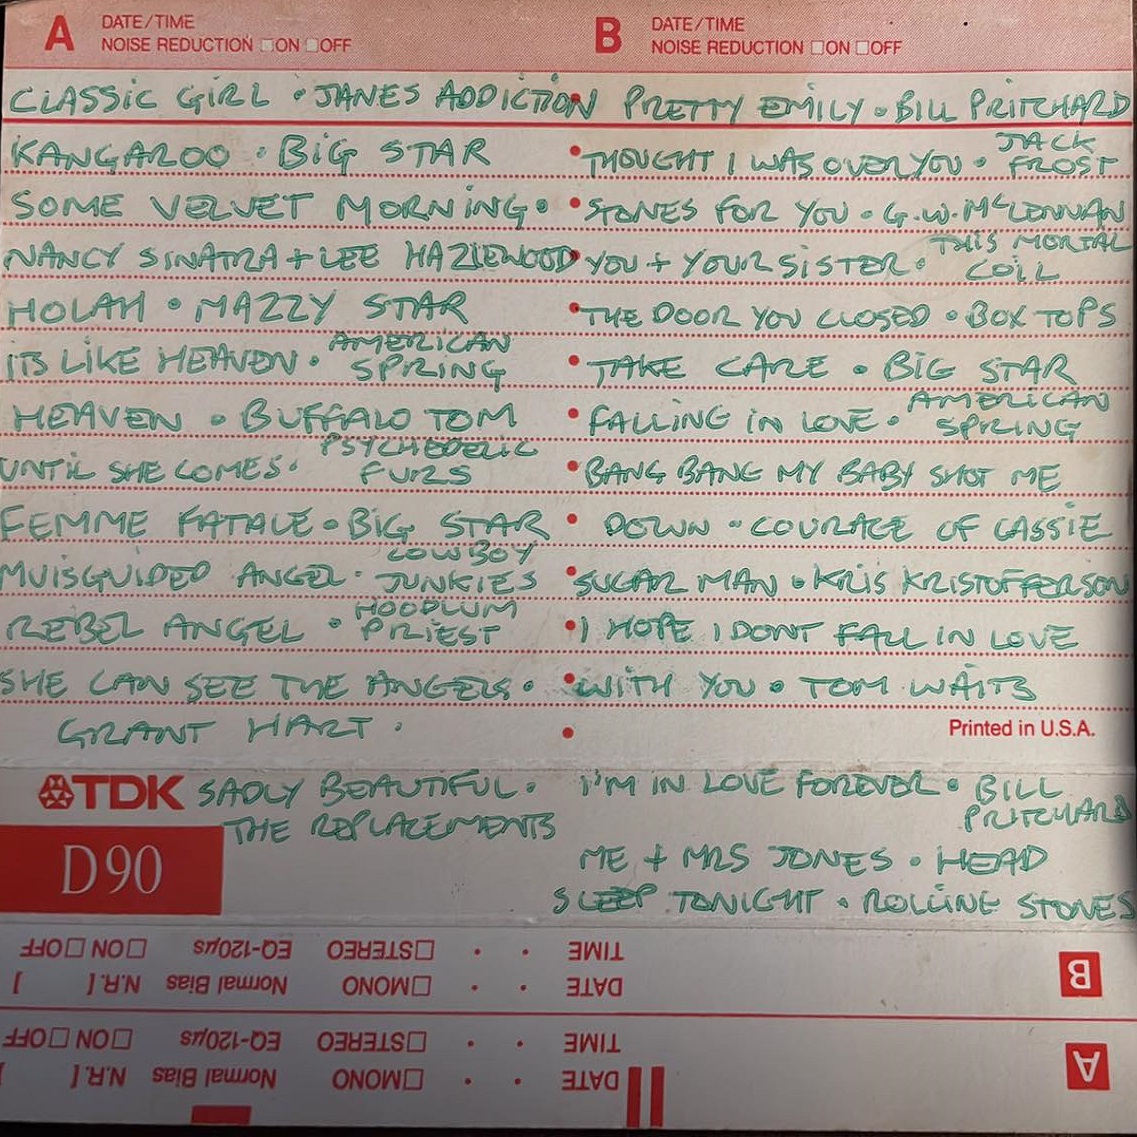 A DATE/TIME
NOISE REDUCTION □ON □OFF
CLASSIC GIRL · JANES ADDICTION
KANGAROO · BIG STAR
SOME VELVET MORNING ·
NANCY SINATRA + LEE HAZLEWOOD
HOLAH · MAZZY STAR
ITS LIKE HEAVEN · AMERICAN SPRING
HEAVEN · BUFFALO TOM
UNTIL SHE COMES · PSYCHEDELIC FURS
FEMME FATALE · BIG STAR
MUISGUIDED ANGEL · COWBOY JUNKIES
REBEL ANGEL · HOODLUM PRIEST
SHE CAN SEE THE ANGELS ·
GRANT HART ·
SADLY BEAUTIFUL ·
THE REPLACEMENTS
B DATE/TIME
NOISE REDUCTION □ON □OFF
PRETTY EMILY · BILL PRITCHARD
THOUGHT I WAS OVER YOU · JACK FROST
STONES FOR YOU · G.W. McLENNAN
YOU + YOUR SISTER · THIS MORTAL COIL
THE DOOR YOU CLOSED · BOX TOPS
TAKE CARE · BIG STAR
FALLING IN LOVE · AMERICAN SPRING
BANG BANG MY BABY SHOT ME
DOWN · COURAGE OF LASSIE
SUGAR MAN · KRIS KRISTOFFERSON
I HOPE I DONT FALL IN LOVE
WITH YOU · TOM WAITS
Printed in U.S.A.
I'M IN LOVE FOREVER · BILL PRITCHARD
ME + MRS JONES · HEAD
SLEEP TONIGHT · ROLLING STONES
TDK
D90
A DATE · · □MONO Normal Bias N.R. [ ]
TIME · · □STEREO EQ-120µs □ON □OFF
B DATE · · □MONO Normal Bias N.R. [ ]
TIME · · □STEREO EQ-120µs □ON □OFF